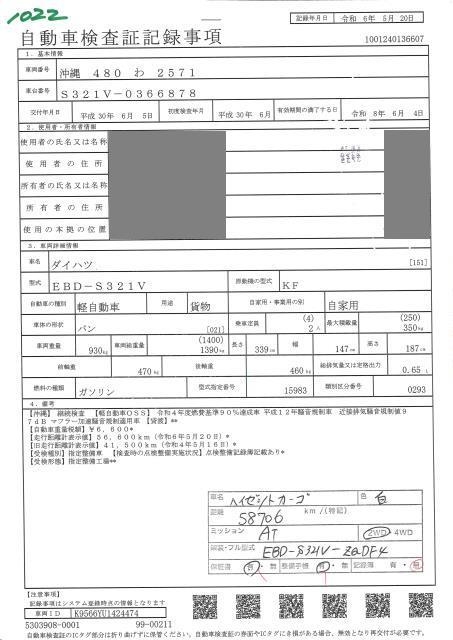 1022
記録年月日 令和 6年 5月 20日
自動車検査証記録事項
1001240136607
1. 基本情報
車両番号 沖縄 480 わ 2571
車台番号 S321V-0366878
交付年月日 平成 30年 6月 5日 初度検査年月 平成 30年 6月 有効期間の満了する日 令和 8年 6月 4日
2. 使用者・所有者情報
使用者の氏名又は名称
使用者の住所
所有者の氏名又は名称
所有者の住所
使用の本拠の位置
3. 車両詳細情報
車名 ダイハツ [151]
型式 EBD-S321V 原動機の型式 KF
自動車の種別 軽自動車 用途 貨物 自家用・事業用の別 自家用
車体の形状 バン [021] 乗車定員 (4) 2人 最大積載量 (250) 350kg
車両重量 930kg 車両総重量 (1400) 1390kg 長さ 339cm 幅 147cm 高さ 187cm
前軸重 470kg 後軸重 460kg 総排気量又は定格出力 0.65 L
燃料の種類 ガソリン 型式指定番号 15983 類別区分番号 0293
4. 備考
【沖縄】 継続検査 【軽自動車OSS】 令和4年度燃費基準90%達成車 平成12年騒音規制車 近接排気騒音規制値9
7dB マフラー加速騒音規制適用車 【貸渡】**
【自動車重量税額】¥6,600*
【走行距離計表示値】56,600km(令和6年5月20日)*
【旧走行距離計表示値】41,500km(令和4年5月16日)*
【受検種別】指定整備車 【検査時の点検整備実施状況】点検整備記録簿記載あり*
【受検形態】指定整備工場**
車名 ハイゼットカーゴ 色 白
距離 58706 km/(特記)
ミッション AT 2WD・4WD
類装・フル型式 EBD-S321V-ZQDF4
保証書 有・無 整備手帳 有・無 記録簿 有・無
【注意事項】
記載事項はシステム登録時点の情報となります
車両ID K9566YU1424474
5303908-0001 99-00211
自動車検査証のICタグ部分は折り曲げずに保管ください。自動車検査証の券面やICタグにき損がある場合、無効となり再交付が必要です。